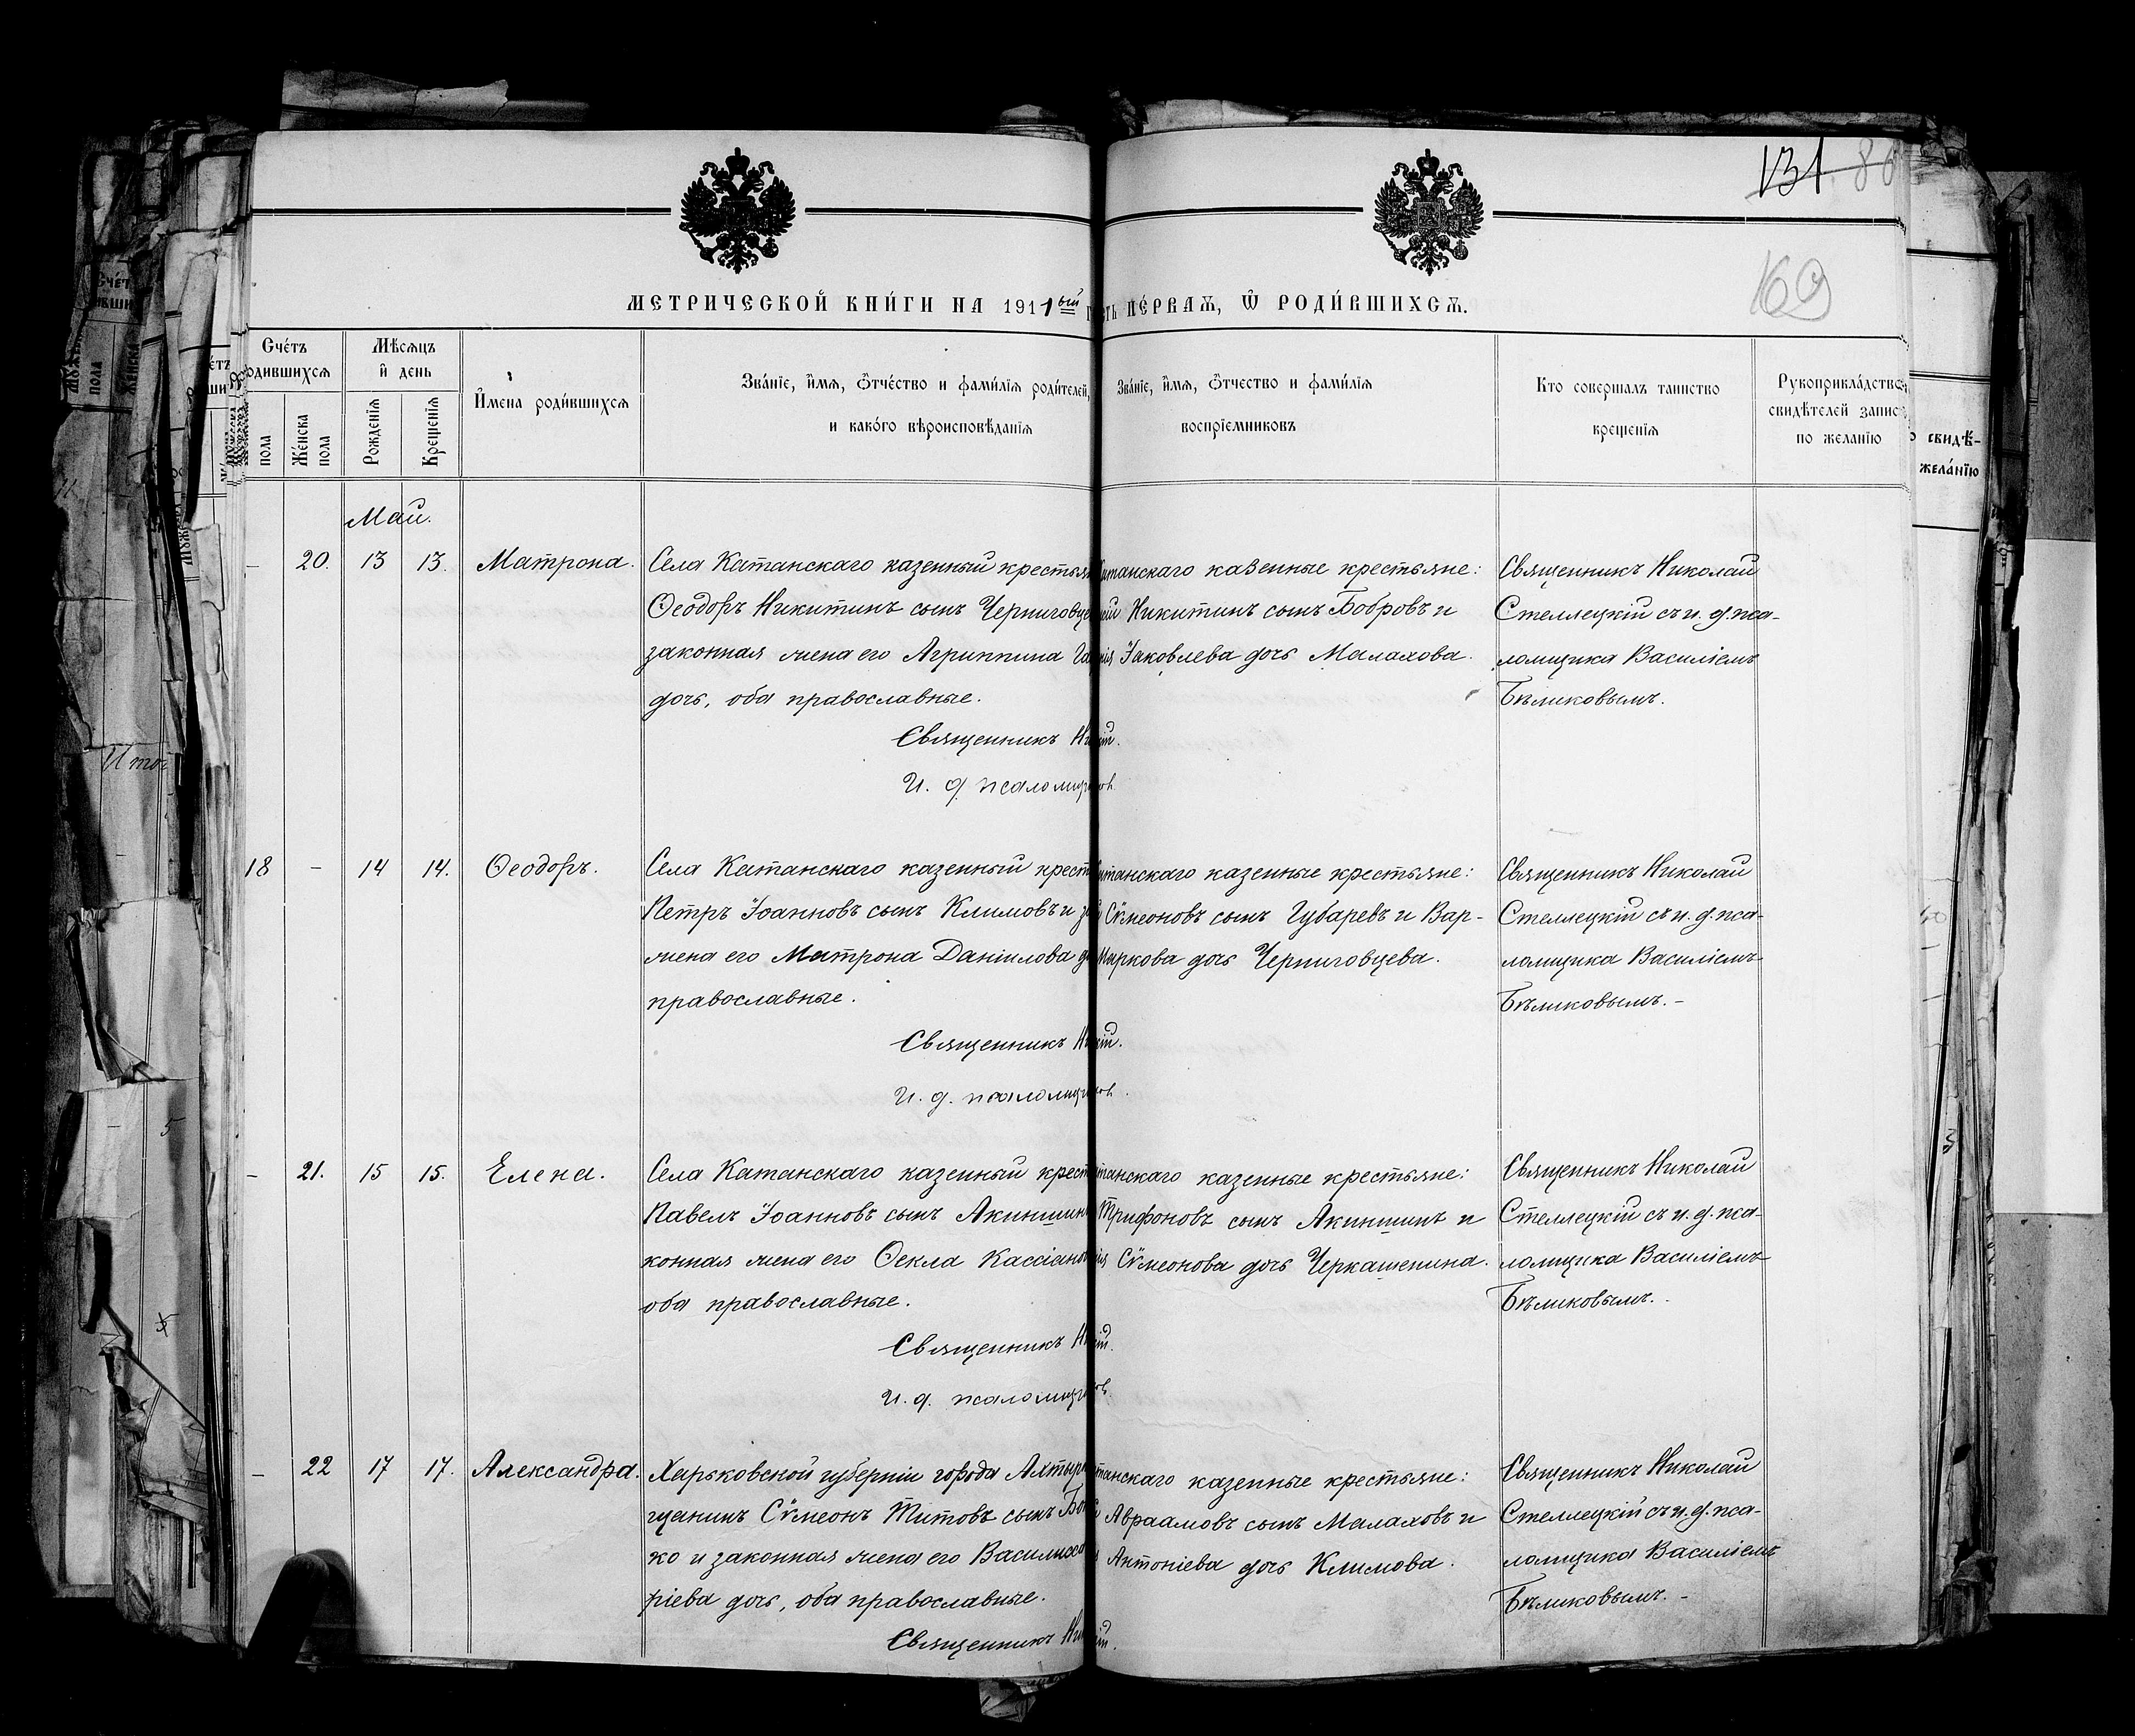 131 80
169
МЕТРИЧЕСКОЙ КНИ́ГИ НА 1911ый
ПЕ́РВАѦ, Ѿ РОДИ́ВШИХСѦ.
Счéтъ
родившихсѧ
пола
Жéнска
пола
Мѣсѧцъ
и день
Рожденїѧ
Крещенїѧ
И҆мена роди́вшихсѧ
Зва́нїе, и҆мѧ, ѻ҆тче́ство и фами́лїѧ роди́телей,
и како́го вѣроисповѣ́данїѧ
Зва́нїе, и҆мѧ, ѻ҆тчество и фами́лїѧ
воспрїемниковъ
Кто совершалъ таинство
крещенїѧ
Рукоприкла́дство
свидѣ́телей запис
по желанїю
Май.
– 20. 13 13. Матрона.
Села Катанскаго казенный крестьян
Ѳеодоръ Никитинъ сынъ Черниговце
законная жена его Агриппина
дочь, оба православные.
Священникъ
И. д. псаломщ
казенные крестьяне:
Никитинъ сынъ Бобровъ и
Іаковлева дочь Малахова.
Священникъ Николай
Стеллецкій съ и. д. пса-
ломщика Василіемъ
Бѣликовымъ.
18 – 14 14. Ѳеодоръ.
Села Катанскаго казенный крест
Петръ Іоанновъ сынъ Климовъ и
жена его Матрона Даніилова
православные.
Священникъ
И. д. псаломщ
казенные крестьяне:
Сѵмеоновъ сынъ Губаревъ и Вар-
Маркова дочь Черниговцева.
Священникъ Николай
Стеллецкій съ и. д. пса-
ломщика Василіемъ
Бѣликовымъ. –
– 21. 15 15. Елена.
Села Катанскаго казенный крест
Павелъ Іоанновъ сынъ Акиншинъ
конная жена его Ѳекла Кассіано
оба православные.
Священникъ
И. д. псаломщ
казенные крестьяне:
Трифоновъ сынъ Акиншинъ и
Сѵмеонова дочь Черкашенина.
Священникъ Николай
Стеллецкій съ и. д. пса-
ломщика Василіемъ
Бѣликовымъ. –
– 22 17 17. Александра.
Харьковской губерніи города Ахтыр
щанинъ Сѵмеонъ Титовъ сынъ
ко и законная жена его Василисса
ріева дочь, оба православные.
Священникъ
казенные крестьяне:
Авраамовъ сынъ Малаховъ и
Антоніева дочь Климова.
Священникъ Николай
Стеллецкій съ и. д. пса-
ломщика Василіемъ
Бѣликовымъ. –